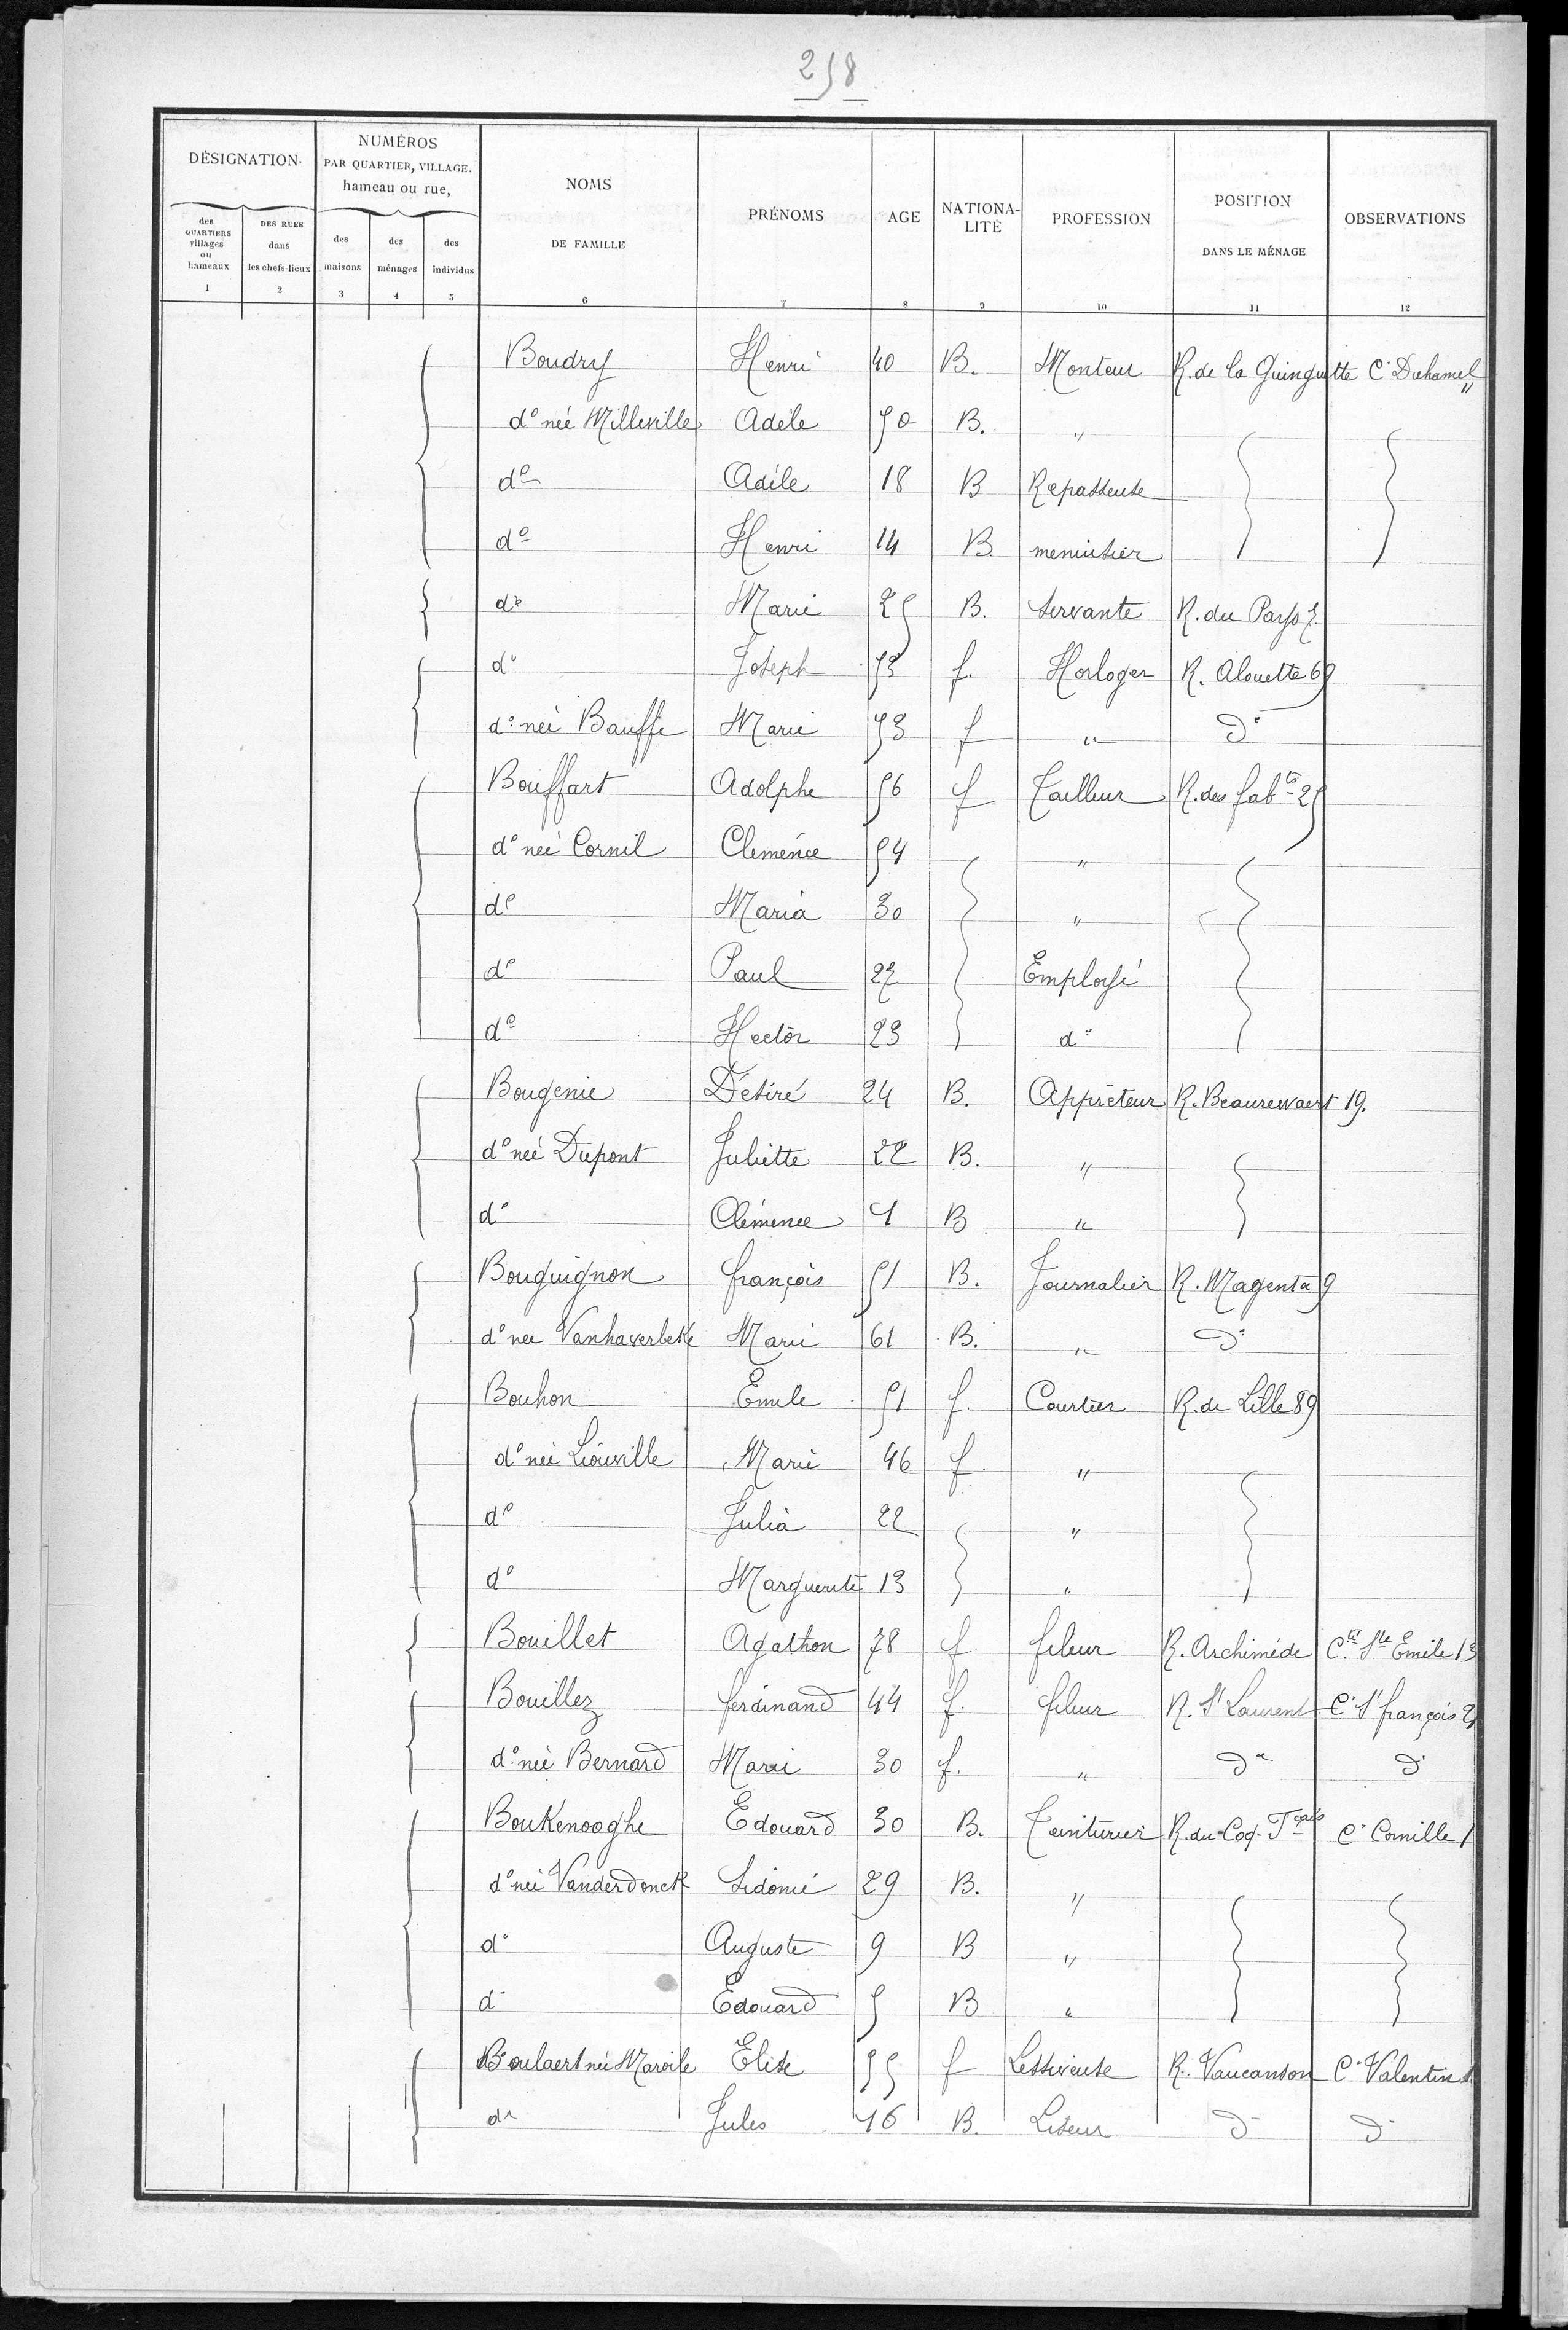 258
DÉSIGNATION.
NUMÉROS
PAR QUARTIER, VILLAGE.
hameau ou rue,
NOMS
DE FAMILLE
PRÉNOMS
AGE
NATIONA-
LITÉ
PROFESSION
POSITION
DANS LE MÉNAGE
OBSERVATIONS
des
QUARTIERS
villages
ou
hameaux
DES RUES
dans
les chefs-lieux
des
maisons
des
ménages
des
individus
1 2 3 4 5 6 7 8 9 10 11 12
Boudry Henri 40 B. Monteur R. de la Guinguette C. Duhamel "
d° née Milleville Adèle 50 B. "
d° Adèle 18 B Repasseuse
d° Henri 14 B. menuisier
d° Marie 25 B. Servante R. du Pays 7
d° Joseph 53 f. Horloger R. Alouette 69
d° née Bauffe Marie 53 f " d°
Bouffart Adolphe 56 f Tailleur R. des fabts 25
d° née Cornil Clemence 54 "
d° Maria 30 "
d° Paul 27 Employé
d° Hector 23 d°
Bougenie Désiré 24 B. Apprêteur R. Beaurewaert 19.
d° née Dupont Juliette 22 B. "
d° Clémence 1 B "
Bouguignon françois 51 B. Journalier R. Magenta 9
d° née Vanhaverbeke Marie 61 B. " d°
Bouhon Emile 51 f. Courtier R. de Lille 89
d° née Liouville Marie 46 f. "
d° Julia 22 "
d° Marguerite 13 "
Bouillet Agathon 78 f fileur R. Archiméde Cté Ste Emile 13
Bouillez ferdinand 44 f. fileur R. St Laurent C. St françois 2
d° née Bernard Marie 30 f. " d° d°
Boukenooghe Edouard 30 B. Teinturier R. du Coq-Fçais C. Cornille 1
d° née Vanderdonck Sidonie 29 B. "
d° Auguste 9 B "
d° Edouard 5 B "
Boulaert née Maroile Elise 55 f Lessiveuse R. Vaucanson C. Valentin 1
d° Jules 16 B. Liseur d° d°